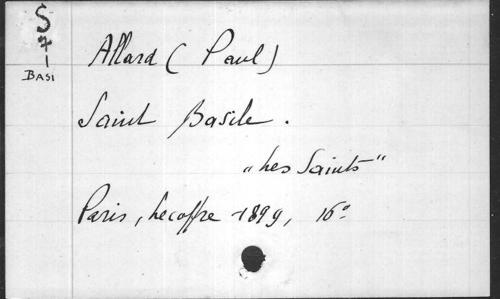 S
#-
BASI
Allard (Paul)
Saint Basile.
„Les Saints"
Paris, Lecoffre 1899, 16°